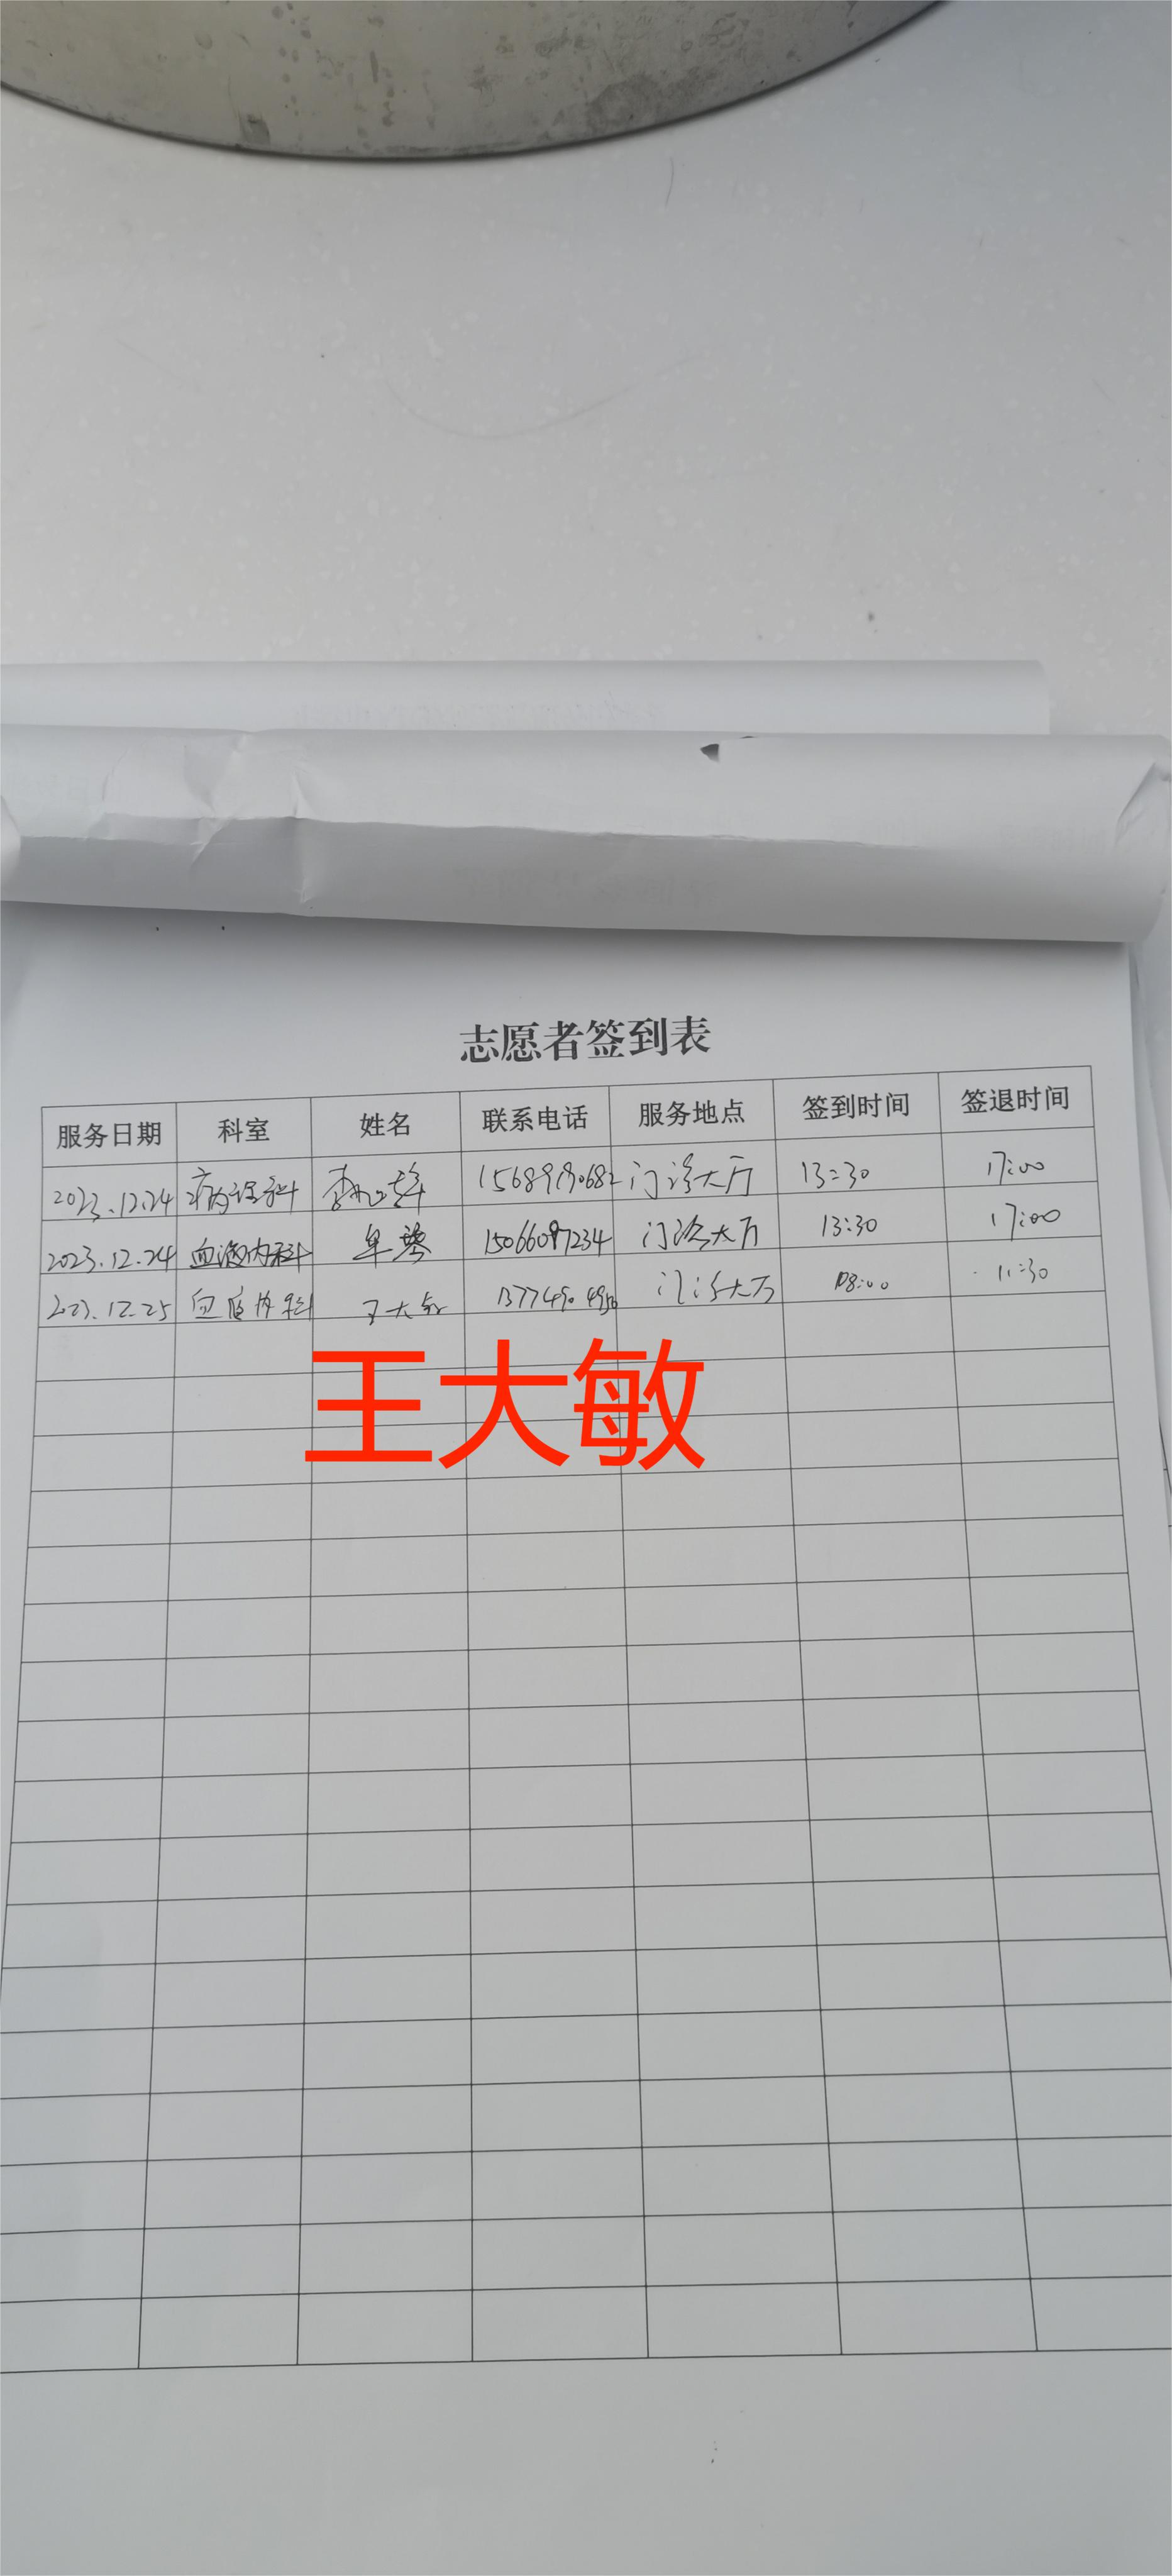 志愿者签到表
服务日期 科室 姓名 联系电话 服务地点 签到时间 签退时间
2023.12.24 病理科 门诊大厅 13:30 17:00
2023.12.24 血液内科 牟 15066097234 门诊大厅 13:30 17:00
2023.12.25 血液内科 王大敏 门诊大厅 08:00 11:30
王大敏